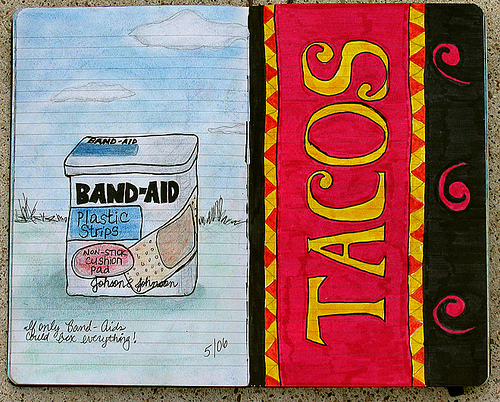 BAND-AID
BAND-AID
Plastic
Strips
NON-STICK
CUSHION
Pad
Johson & Johnson
If only Band-Aids
could fix everything!
5/06
TACOS